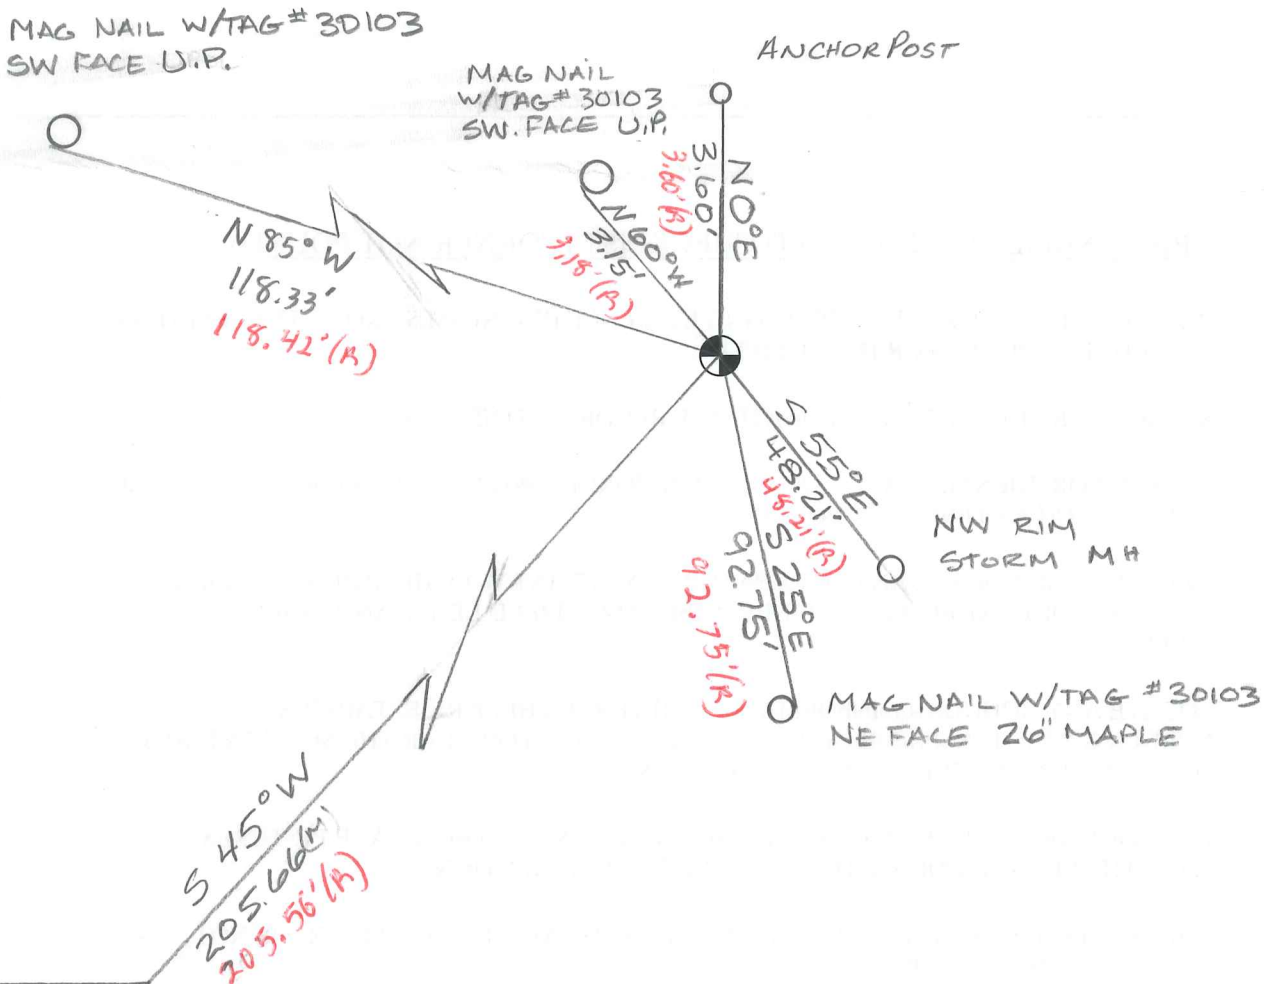 MAG NAIL W/TAG # 30103
SW FACE U.P.
MAG NAIL
W/TAG # 30103
SW. FACE U.P.
ANCHOR POST
N 85° W
118.33'
118.42' (R)
N 60° W
3.15'
3.18' (R)
N 0° E
3.60'
3.60' (R)
S 55° E
48.21'
48.21' (R)
NW RIM
STORM MH
S 25° E
92.75'
92.75' (R)
MAG NAIL W/TAG # 30103
NE FACE 26" MAPLE
S 45° W
205.66 (M)
205.56' (R)